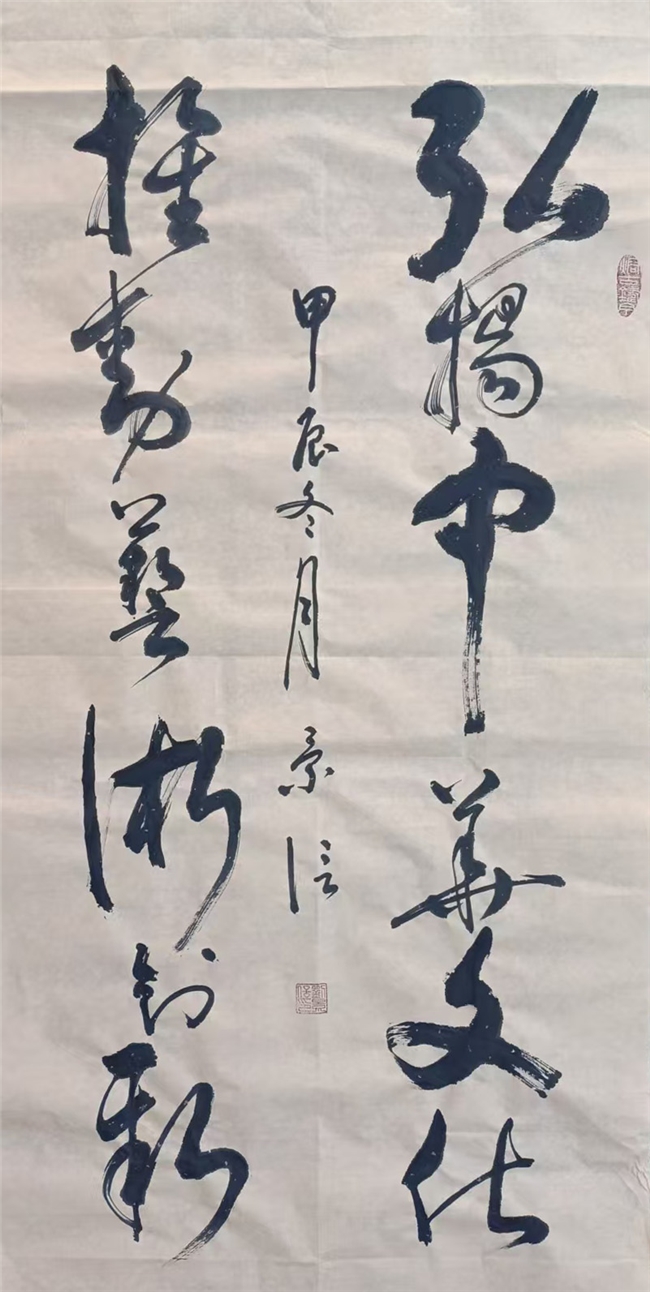 弘揚中華文化
推動藝術創新
甲辰冬月 景信